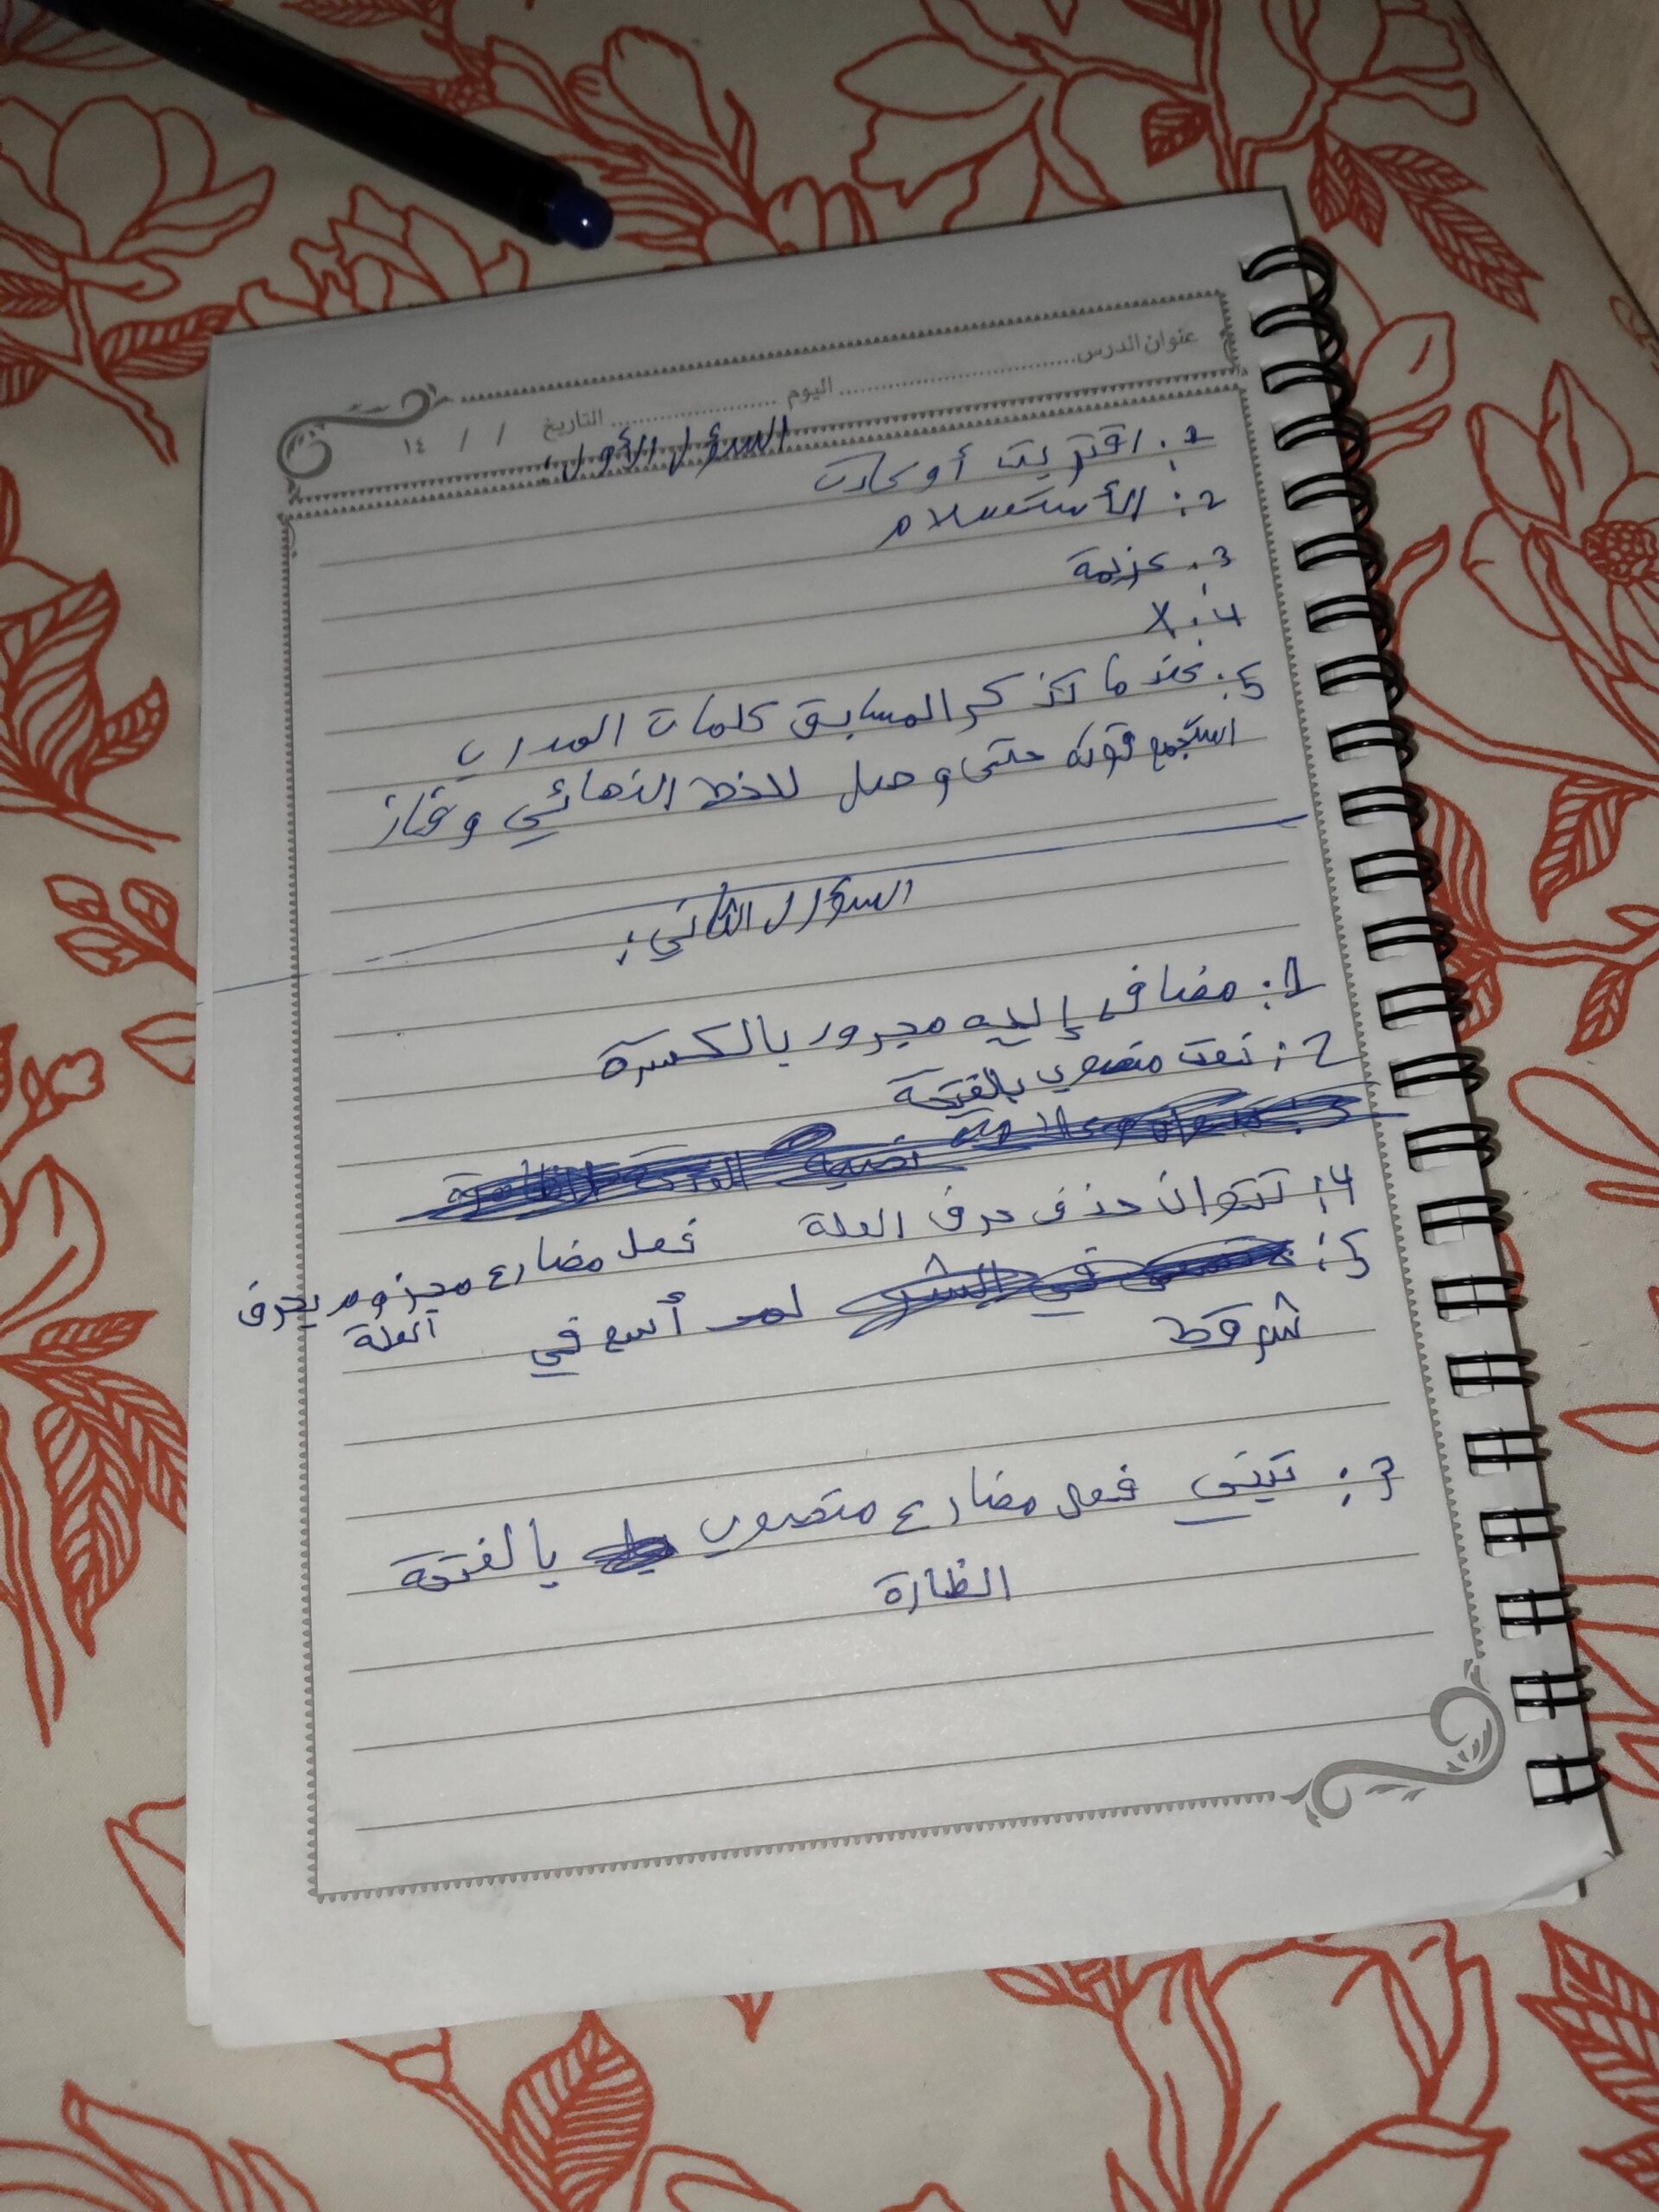 عنوان الدرس ........ اليوم ........ التاريخ / / ١٤
السؤل الأول:
1: اقتربت أو كادت
2: الأستسلام
3: عزيمة
4: X
5: عندما تذكر المسابق كلمات المدرب
استجمع قوته حتى وصل للخط النهائي وفاز
السؤال الثاني:
1: مضاف إليه مجرور بالكسرة
2: نعت منصوب بالفتحة
4: حذف حرف العلة فعل مضارع مجزوم بحرف
العلة
5: لم أسع في
3: فعل مضارع منصوب بالفتحة